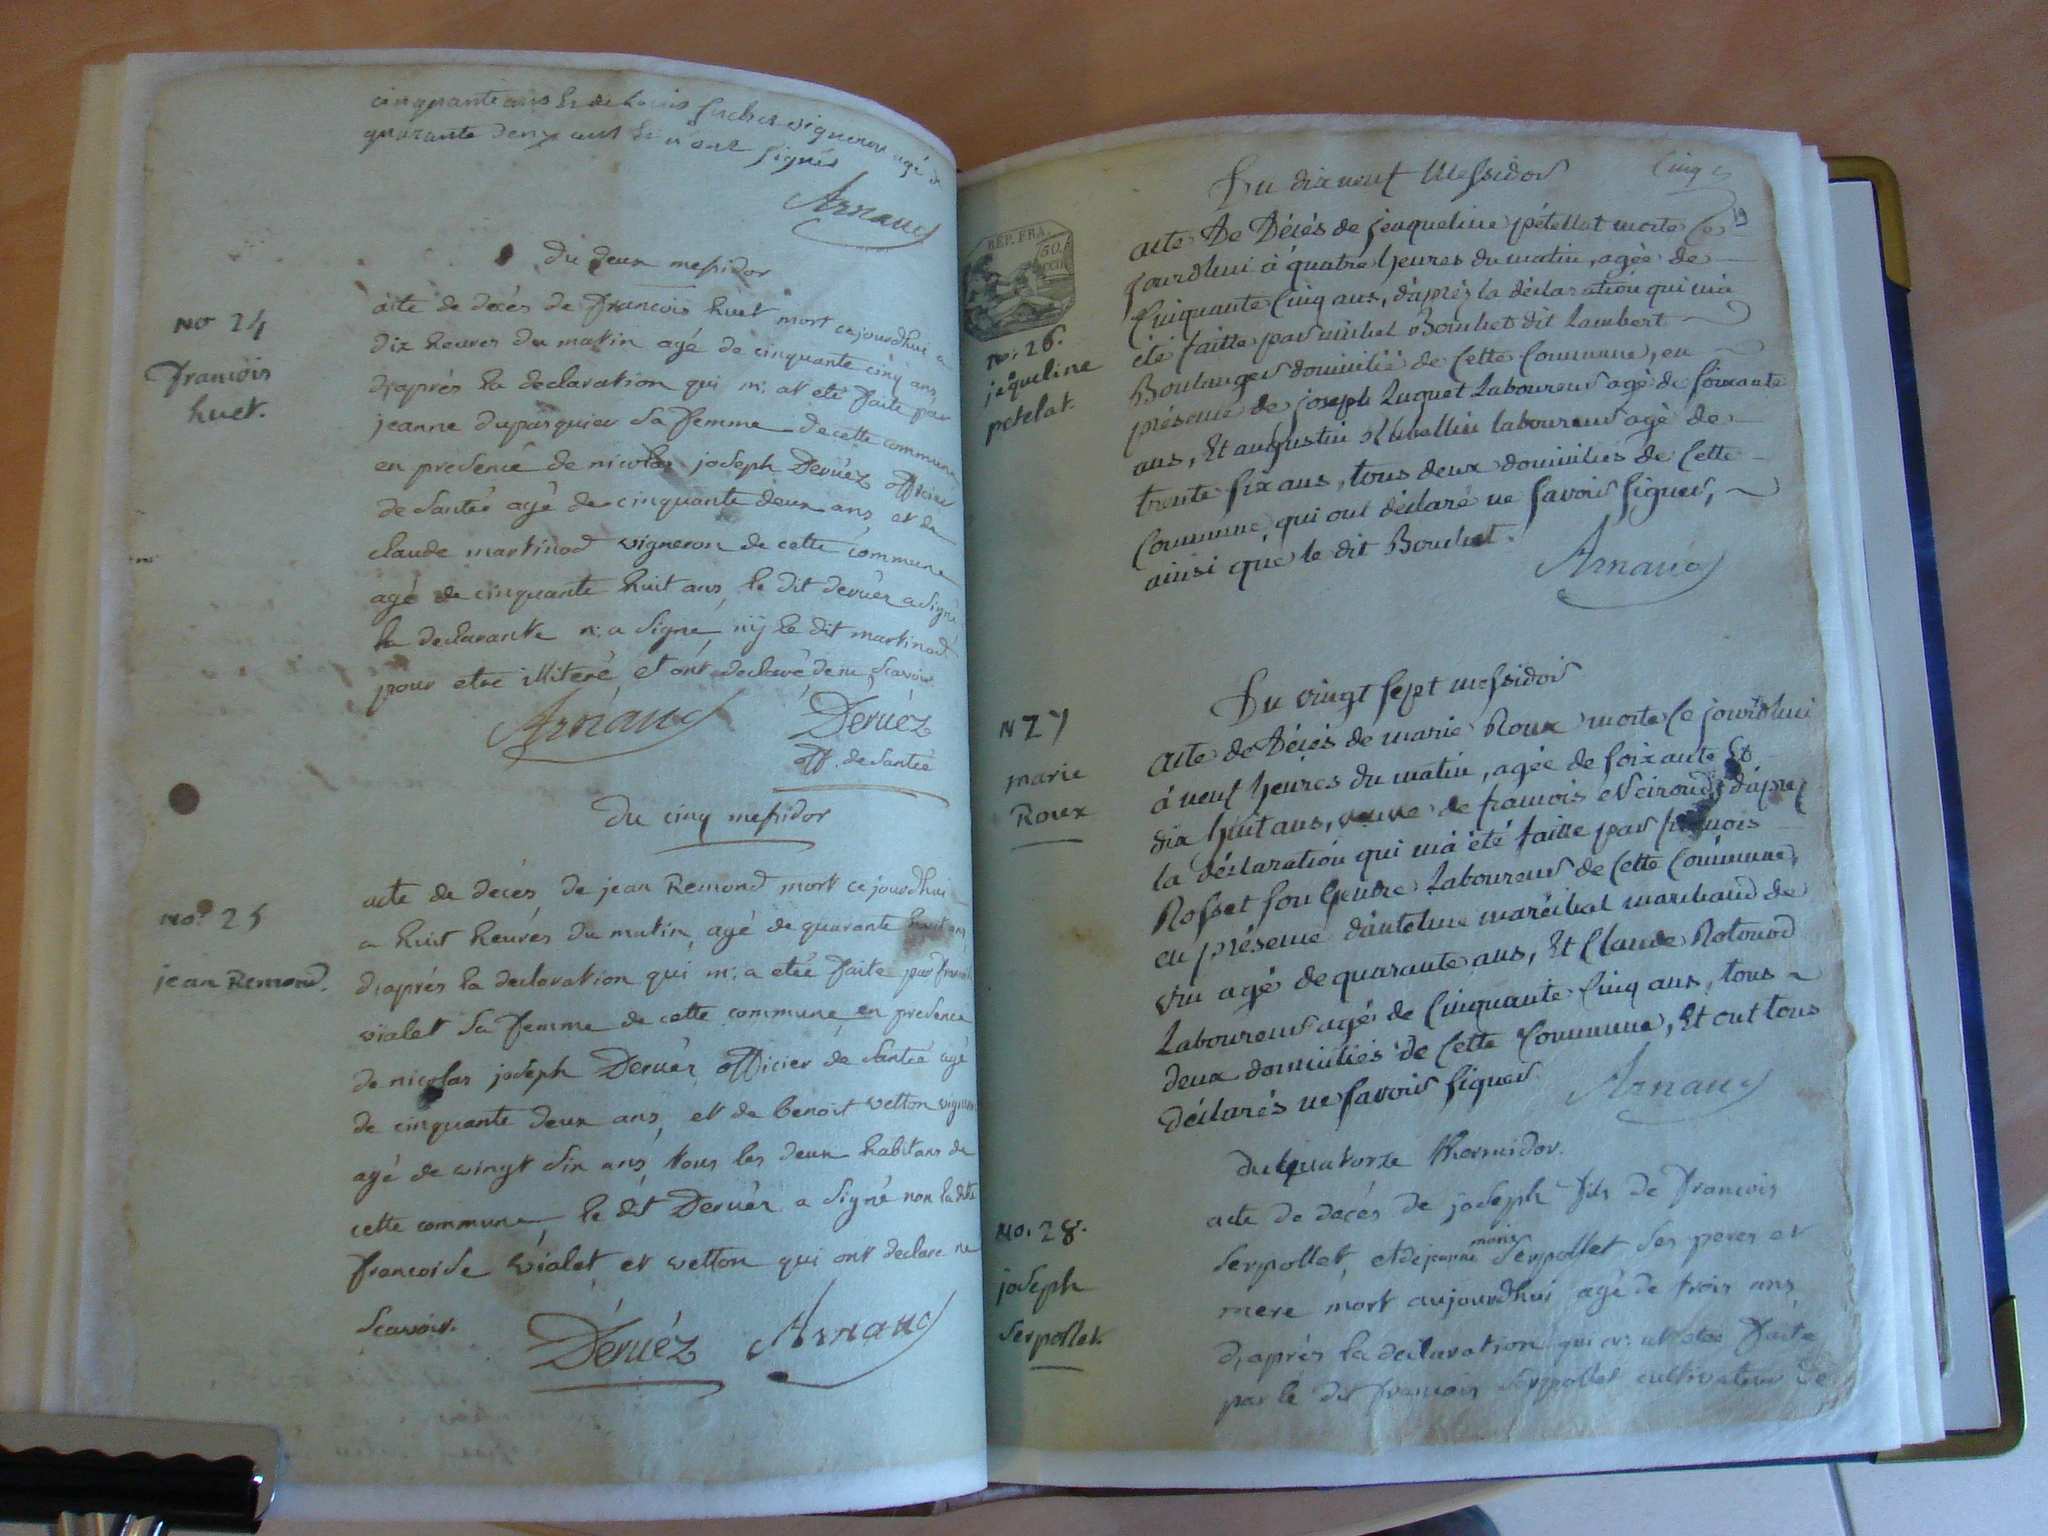 cinquante ans & de Louis vigneron agé de
quarante deux ans & n'ont signés
Arnaud
du deux messidor
No 24
francois
huet.
acte de decés de francois huet mort cejourdhui a
dix heures du matin agé de cinquante cinq ans,
d'aprés la declaration qui m'at eté faite par
jeanne dupasquier sa femme de cette commune
en presence de nicolas joseph Deruéz officier
de santé agé de cinquante deux ans, et de
claude martinod vigneron de cette commune
agé de cinquante huit ans, le dit deruéz a signé
la declarante n'a signé, nÿ le dit martinod
pour etre illiteré et ont declaré de ne scavoir.
Arnaud Deruéz
off. de santé
du cinq messidor
No. 25
jean Remond.
acte de decés de jean Remond mort cejourdhui
a huit heures du matin, agé de quarante huit ans
d'aprés la declaration qui m'a eté faite par
vialet sa femme de cette commune, en presence
de nicolas joseph Deruéz officier de santé agé
de cinquante deux ans, et de benoit vetton
agé de vingt six ans tous les deux habitans de
cette commune, le dit Deruéz a signé non la dite
francoise vialet, et vetton qui ont declaré ne
scavoir.
Deruéz Arnaud
Cinq
19
REP. FRA.
50.
CEN.
Du dix neuf Messidor
No. 26.
jaqueline
petelat.
acte De Décés de jeaqueline pétellat morte Ce
jourdhui à quatre heures du matin, agée de
Cinquante Cinq ans, d'aprés la déclaration qui m'a
été faitte par michel Bouchet dit Lambert
Boulanger domicilié de Cette Commune, en
présence de joseph Luquet Laboureur agé de soixante
ans, Et augustin Rubellin laboureur agé de
trente six ans, tous deux domiciliés de Cette
Commune, qui ont déclaré ne savoir signer,
ainsi que le dit Bouchet.
Arnaud
Du vingt sept messidor
N 27
marie
Roux
acte de Décés de marie Roux morte Ce jourdhui
à neuf heures du matin, agée de soixante Et
dix huit ans, veuve de francois Neiroud, d'aprés
la déclaration qui m'a été faitte par francois
Rosset son Gendre Laboureur de Cette Commune,
en présence d'antelme maréchal marchand de
vin agé de quarante ans, Et Claude Rotonod
Laboureur agé de Cinquante Cinq ans, tous
deux domiciliés de Cette Commune, Et ont tous
déclarés ne savoir signer.
Arnaud
du quatorze thermidor.
No. 28.
joseph
Serpollet.
acte de decés de joseph fils de francois
Serpollet, et de jeanne marie Serpollet ses peres et
mere mort aujourdhui agé de trois ans
d'aprés la declaration qui m'at eté faite
par le dit francois Serpollet cultivateur de